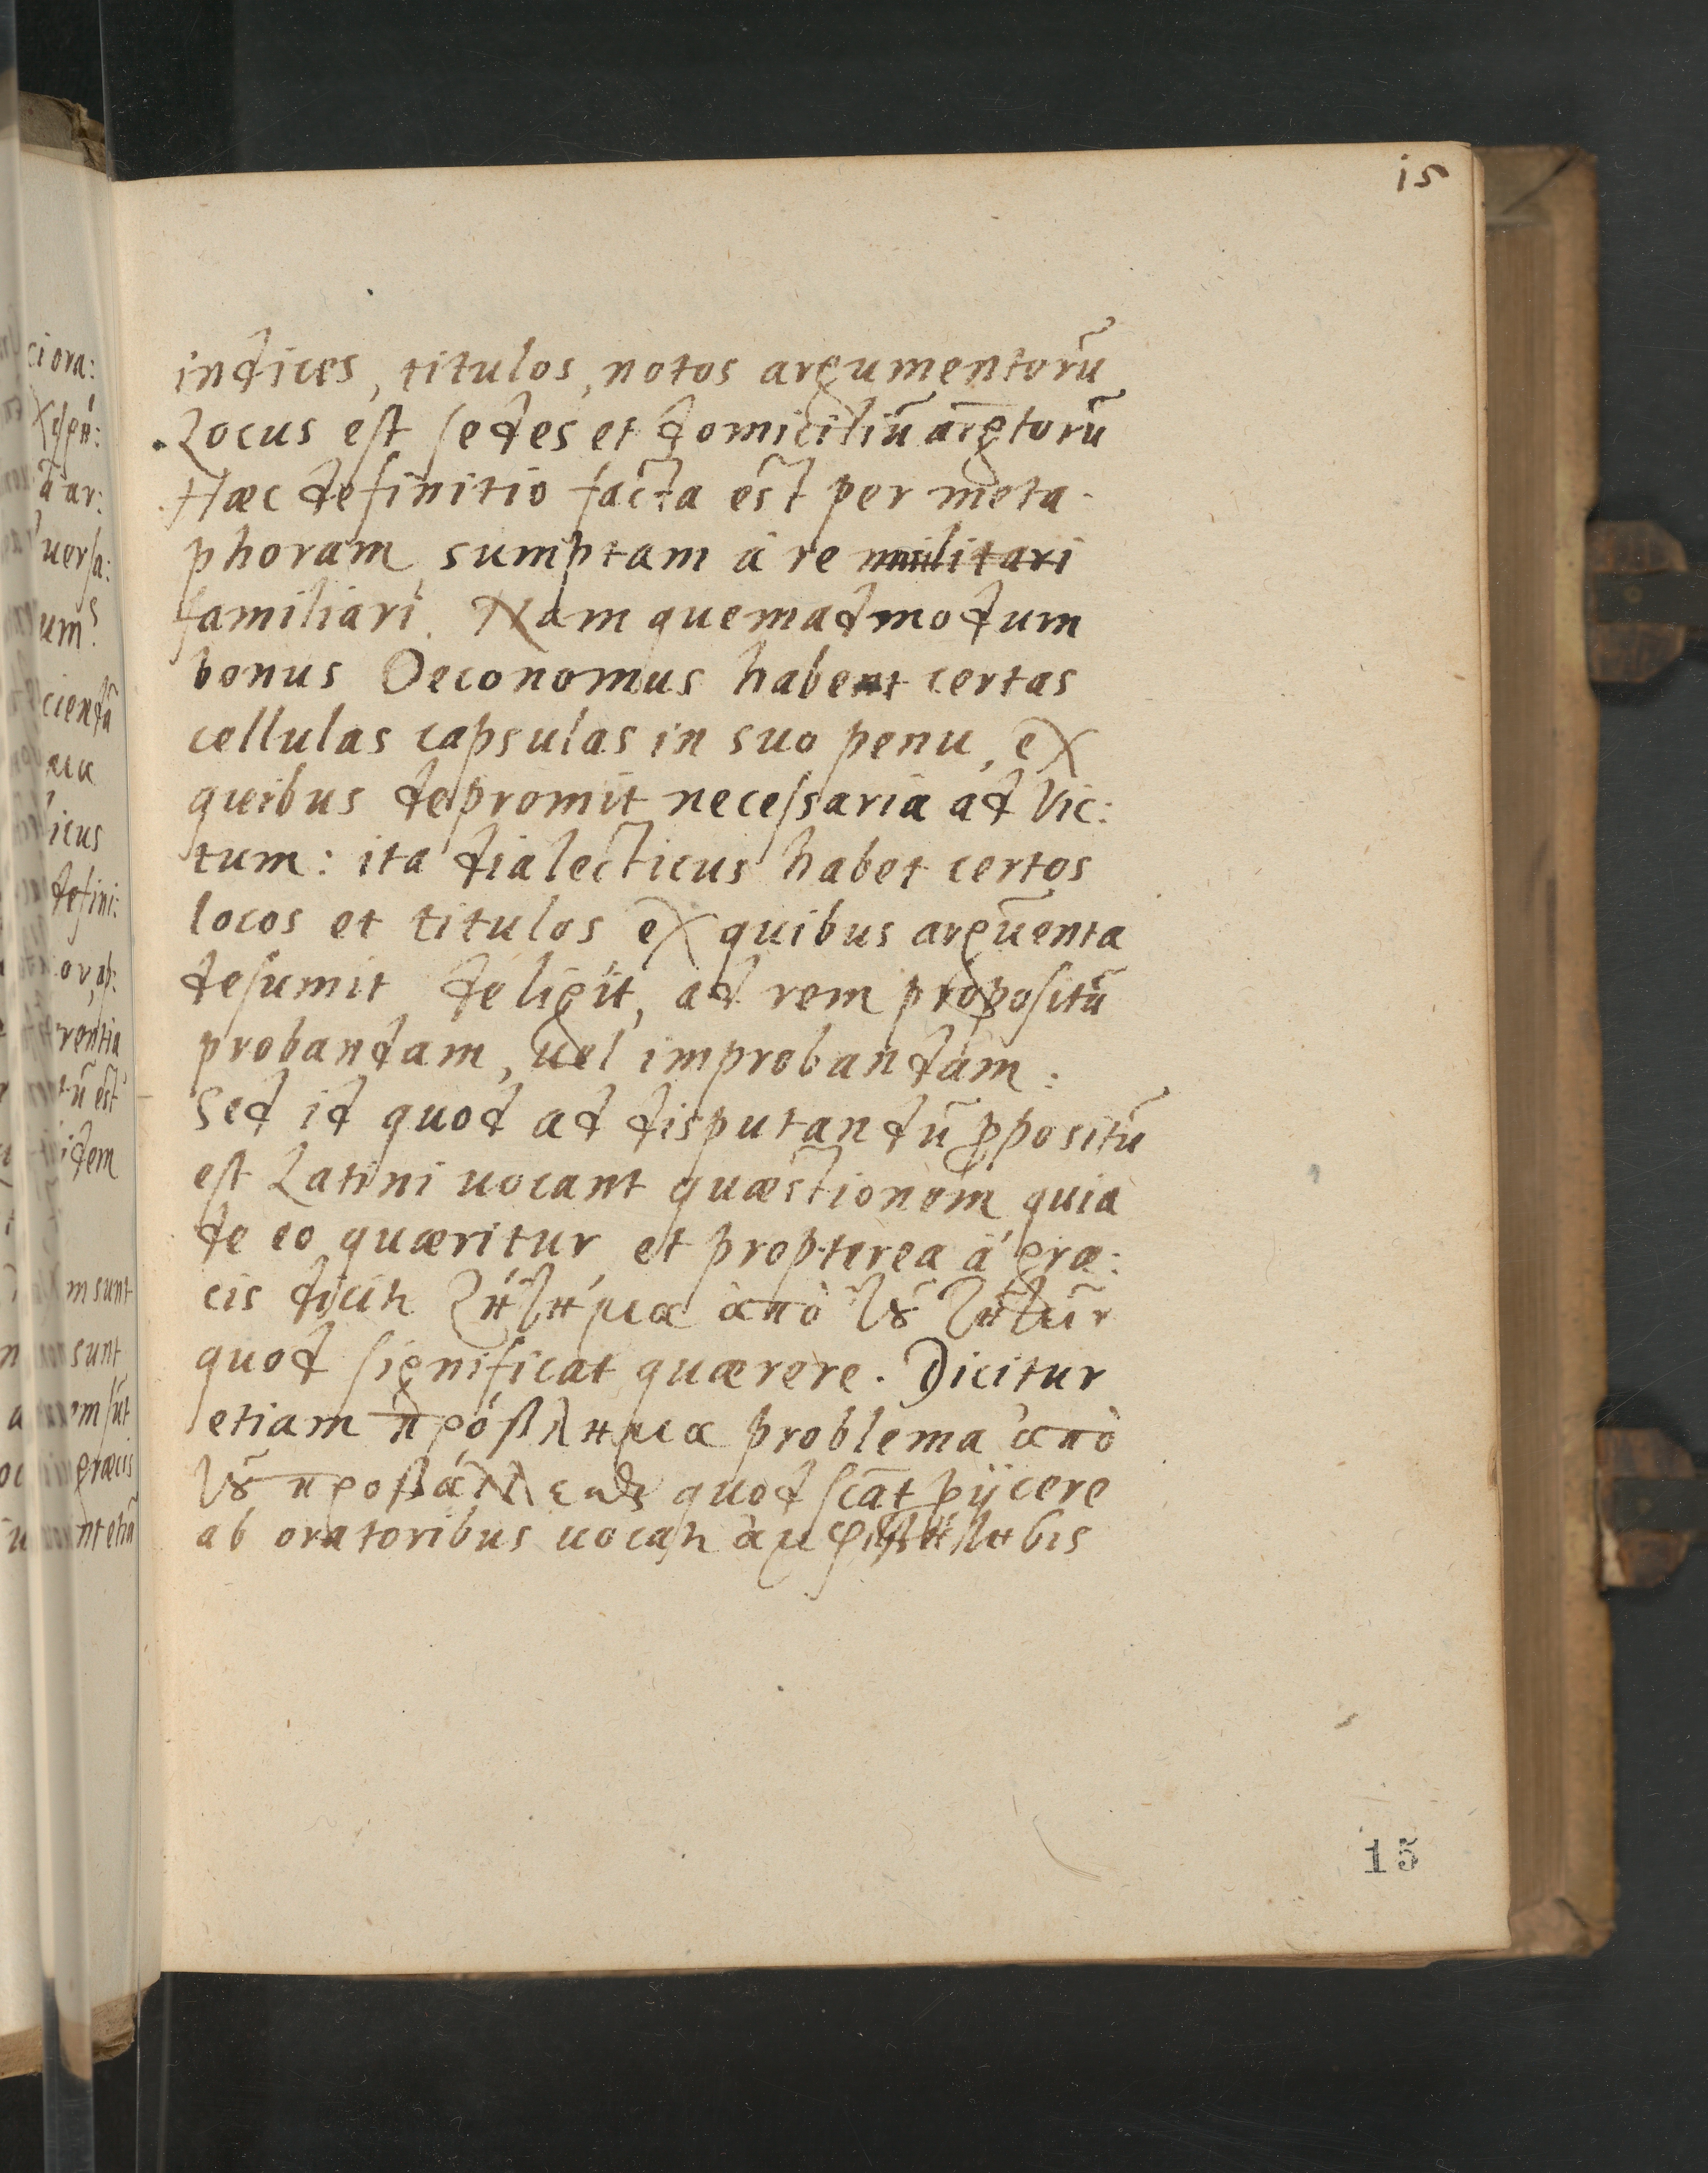 15
indices, titulos, notos argumentorũ
Locus est sedes et domiciliũ argtorũ
Hæc definitio facta est per meta-
phoram, sumptam à re militari
familiari. Nam quemadmodum
bonus Oeconomus habent certas
cellulas capsulas in suo penu, ex
quibus depromit necessaria ad vic:
tum: ita dialecticus habet certos
locos et titulos ex quibus argũenta
desumit deligit, ad rem propositã
probandam, uel improbandam:
Sed id quod ad disputandũ ꝓpositũ
est Latini uocant quæstionem quia
de eo quæritur et propterea à græ:
cis ζήτήμα ἀπὸ
quod significat quærere. Dicitur
etiam πρόβλημα problema ἀπὸ
quod scāt ꝓijcere
ab oratoribus
15